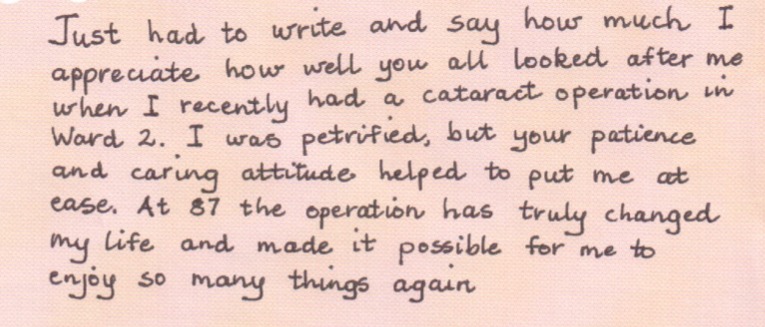 Just had to write and say how much I
appreciate how well you all looked after me
when I recently had a cataract operation in
Ward 2. I was petrified, but your patience
and caring attitude helped to put me at
ease. At 87 the operation has truly changed
my life and made it possible for me to
enjoy so many things again